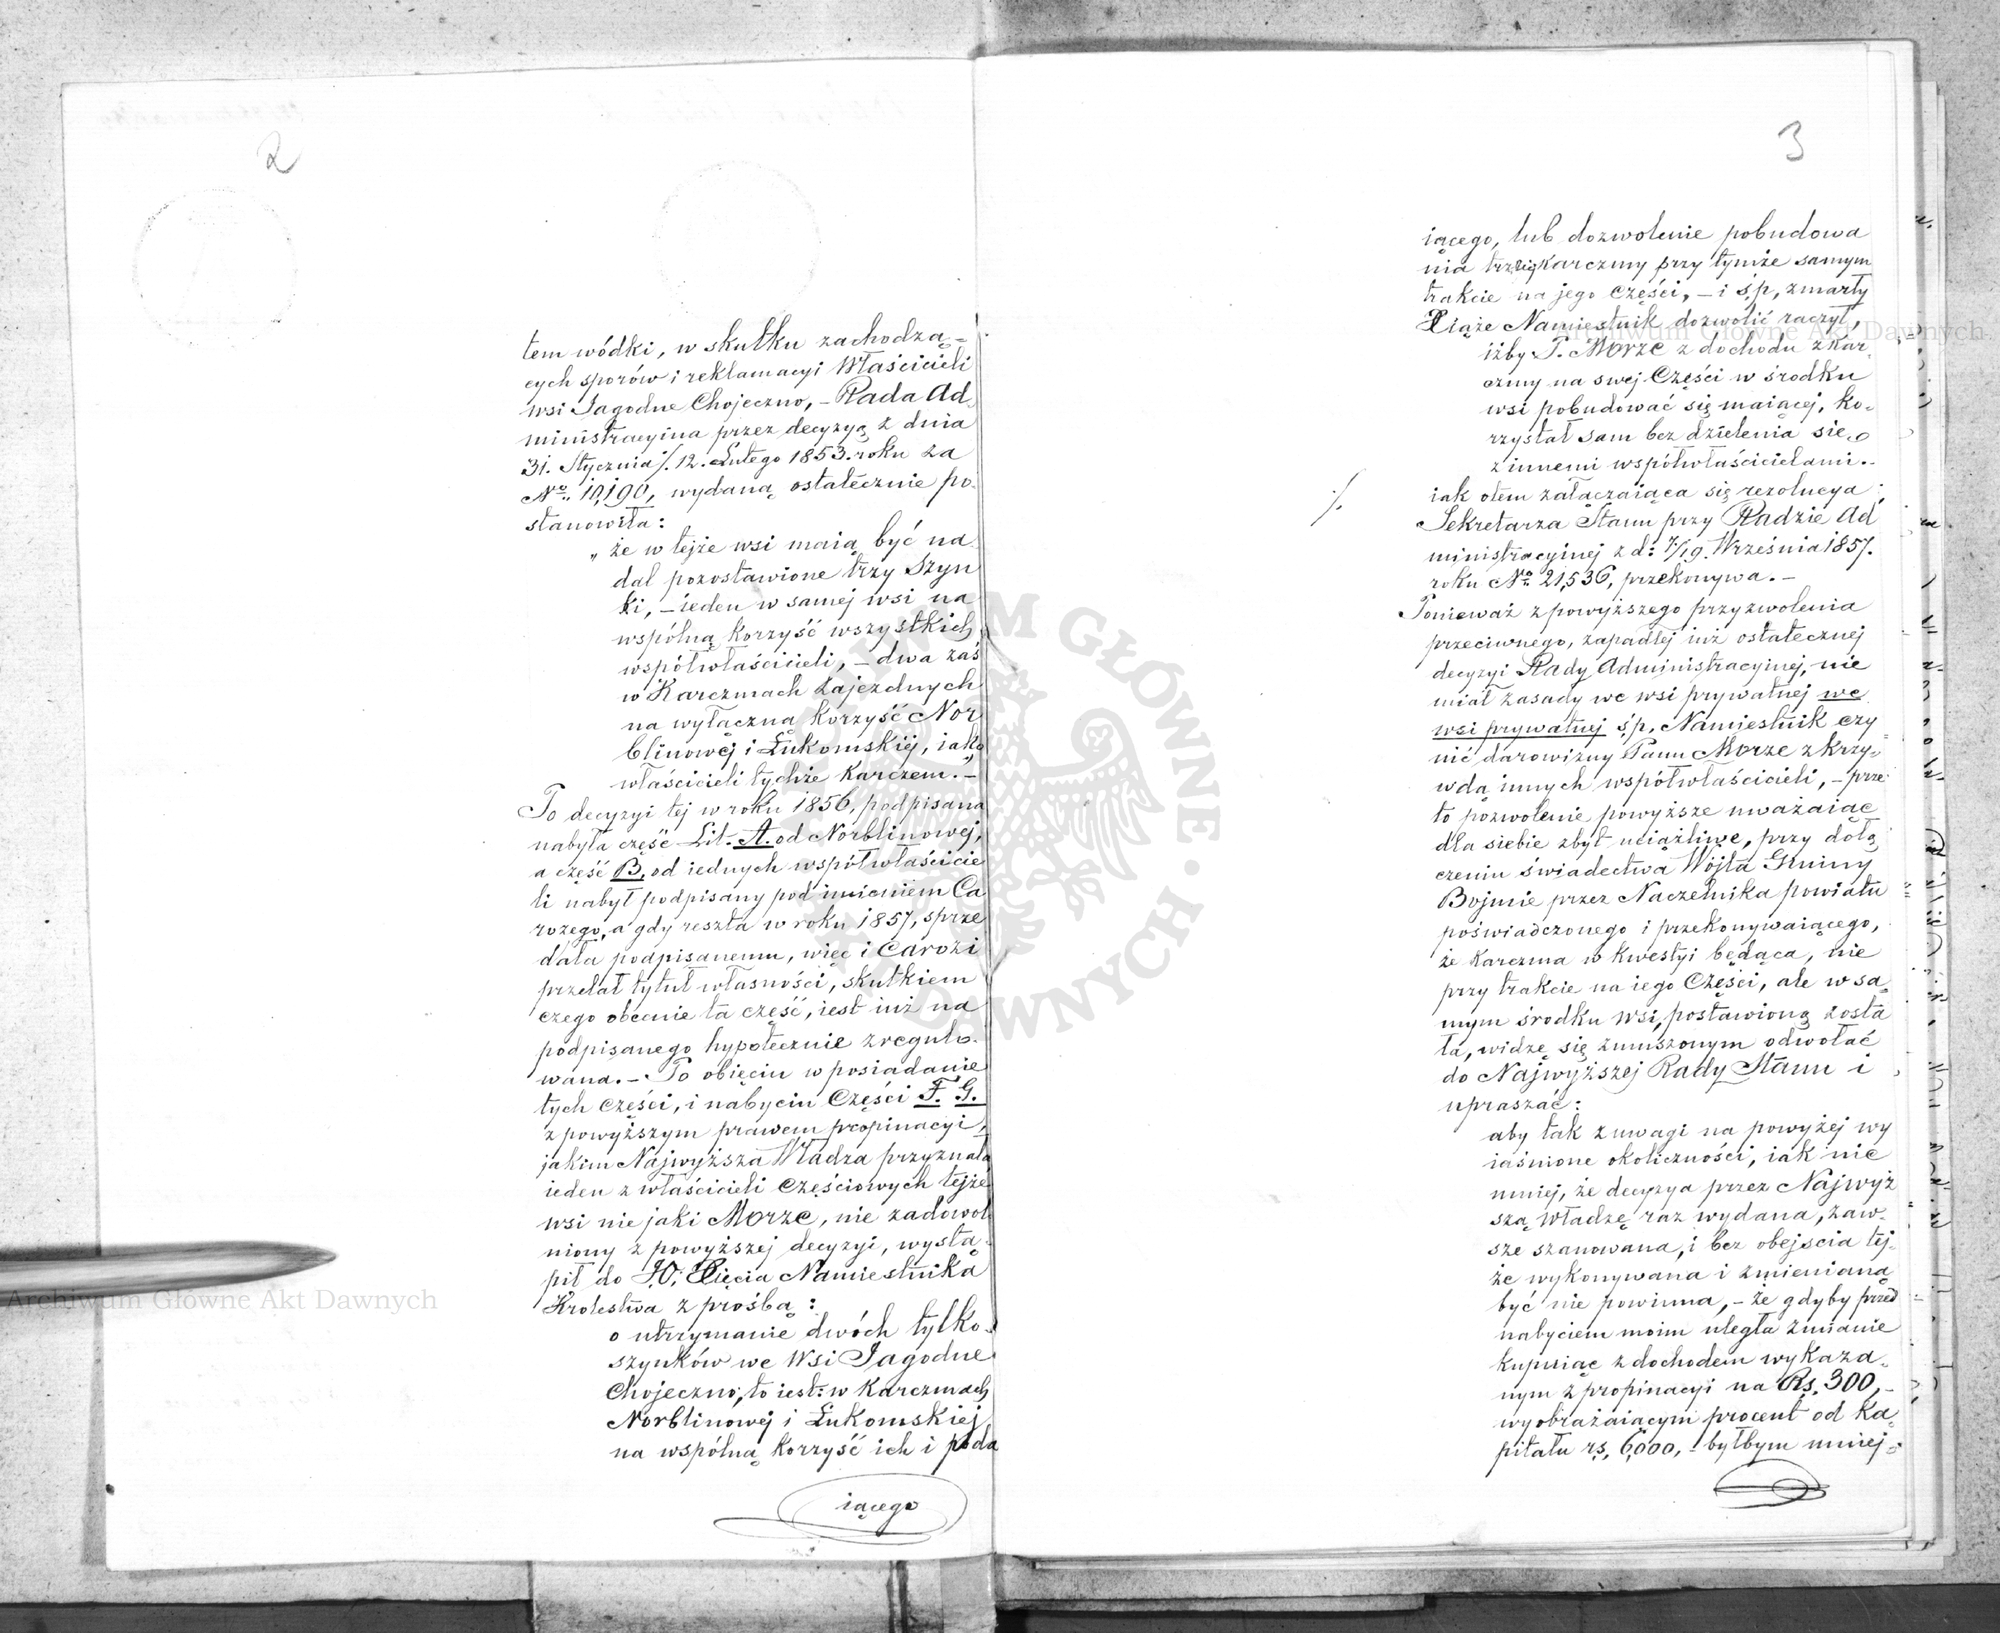 2
tem wódki, w skutku zachodzą-
cych sporów i reklamacyi Właścicieli
wsi Jagodne Chojeczno, – Rada Ad-
ministracyina przez decyzyą z dnia
31. Stycznia/12. Lutego 1853. roku za
No. 10,190, wydaną ostatecznie po-
stanowiła:
„że w tejże wsi maią być na-
dal pozostawione trzy Szyn
ki, – ieden w samej wsi na
wspólną korzyść wszystkich
współwłaścicieli, – dwa zaś
w Karczmach zajezdnych
na wyłączną korzyść Nor
blinowej i Łukomskiej, iako
właścicieli tychże Karczem." –
Po decyzyi tej w roku 1856, podpisana
nabyła część Lit. A. od Norblinowej,
a część B, od iednych współwłaścicie
li nabył podpisany pod imieniem Ca
rozego, a gdy reszta w roku 1857, sprze
dała podpisanemu, więc i Carozi
przelał tytuł własności, skutkiem
czego obecnie ta część, iest iuż na
podpisanego hypotecznie zregulo-
wana. – Po obięciu w posiadanie
tych Części, i nabyciu Części F. G.
z powyższym prawem propinacyi,
jakim Najwyższa Władza przyznała
ieden z właścicieli Częściowych tejże
wsi niejaki Morze, nie zadowol
niony z powyższej decyzyi, wystą-
pił do J.O. Xięcia Namiestnika
Krolestwa z prośbą:
o utrzymanie dwóch tylko
szynków we Wsi Jagodne
Chojeczno, to iest: w Karczmach
Norblinowej i Łukomskiej
na wspólną korzyść ich i poda
iącego
3
iącego, lub dozwolenie pobudowa
nia trzeciej Karczmy przy tymże samym
trakcie na jego Części, – i ś.p, zmarły
Xiąże Namiestnik dozwolić raczył,
iżby P. Morze z dochodu z Kar-
czmy na swej Części w środku
wsi pobudować się maiącej, ko-
rzystał sam bez dzielenia się
z innemi współwłaścicielami. –
iak otem załączaiąca się rezolucya
Sekretarza Stanu przy Radzie Ad
ministracyinej z d: 7/19. Września 1857.
roku No. 21,536, przekonywa. –
Ponieważ z powyższego przyzwolenia
przeciwnego, zapadłej iuż ostatecznej
decyzyi Rady Administracyjnej, nie
miał zasady we wsi prywatnej we
wsi prywatnej ś.p, Namiestnik czy
nić darowizny Panu Morze z krzy-
wdą innych współwłaścicieli, – prze
to pozwolenie powyższe uważaiąc
dla siebie zbyt uciążliwe, przy dołą
czeniu świadectwa Wójta Gminy
Bojmie przez Naczelnika powiatu
poświadczonego i przekonywaiącego,
że Karczma w Kwestyi będąca, nie
przy trakcie na iego Części, ale w sa-
mym środku wsi, postawioną zosta
ła, widzę się zmuszonym odwołać
do Najwyższej Rady Stanu i
upraszać:
aby tak z uwagi na powyżej wy
iaśnione okoliczności, iak nie
mniej, że decyzya przez Najwyż
szą władzę raz wydana, zaw-
sze szanowana, i bez obejscia tej-
że wykonywana i zmienianą
być nie powinna, – że gdyby przed
nabyciem moim uległa zmianie
kupuiąc z dochodem wykaza-
nym z propinacyi na Rs. 300, –
wyobrażaiącym procent od Ka-
pitału rs, 6,000, – byłbym mniej-
Archiwum Główne Akt Dawnych
Archiwum Główne Akt Dawnych
ARCHIWUM GŁÓWNE AKT DAWNYCH